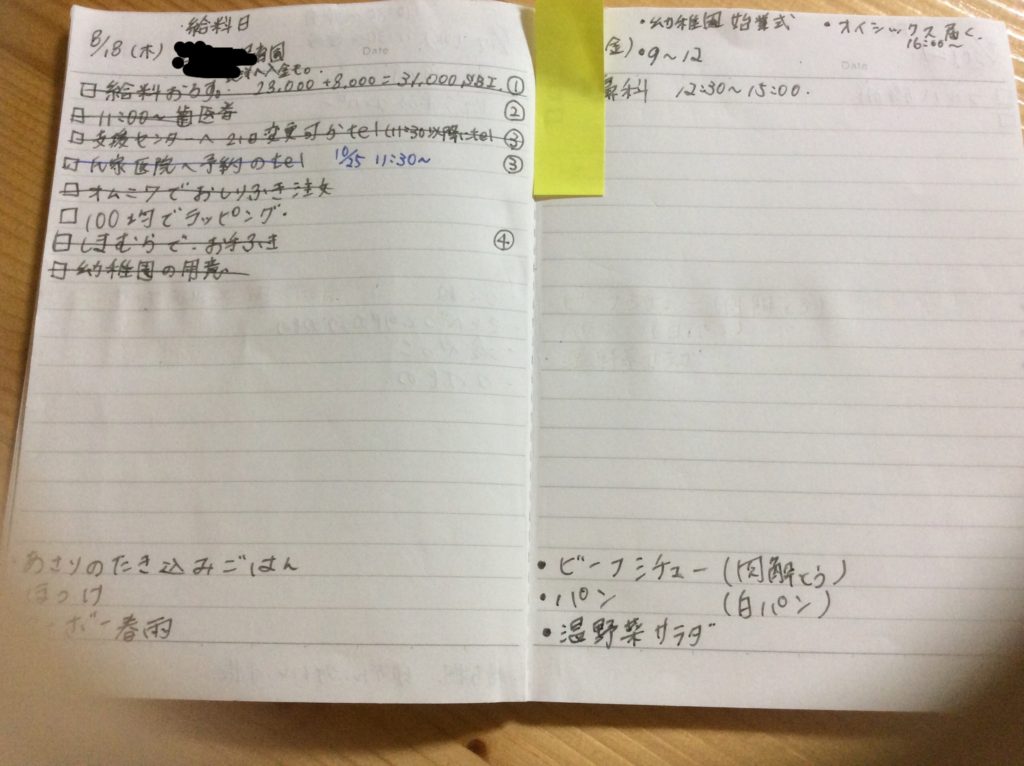 ・給料日
8/18(木)
へ入金も。
□ 給料おろす。 23,000+8,000=31,000 SBI ①
□ 11:00〜歯医者 ②
□ 支援センターへ 21日変更可かtel(11:30以降にtel ③
□ 医院へ予約のtel 10/25 11:30〜 ③
□ オムニ7でおしりふき注文
□ 100均でラッピング・
□ しまむらで、お手ふき ④
□ 幼稚園の用意
・あさりのたき込みごはん
ほっけ
ボー春雨
Date
・幼稚園 始業式 ・オイシックス届く。
16:00〜
金) ・9〜12
Date
鼻科 12:30〜15:00.
・ビーフシチュー (肉解とう)
・パン (白パン)
・温野菜サラダ